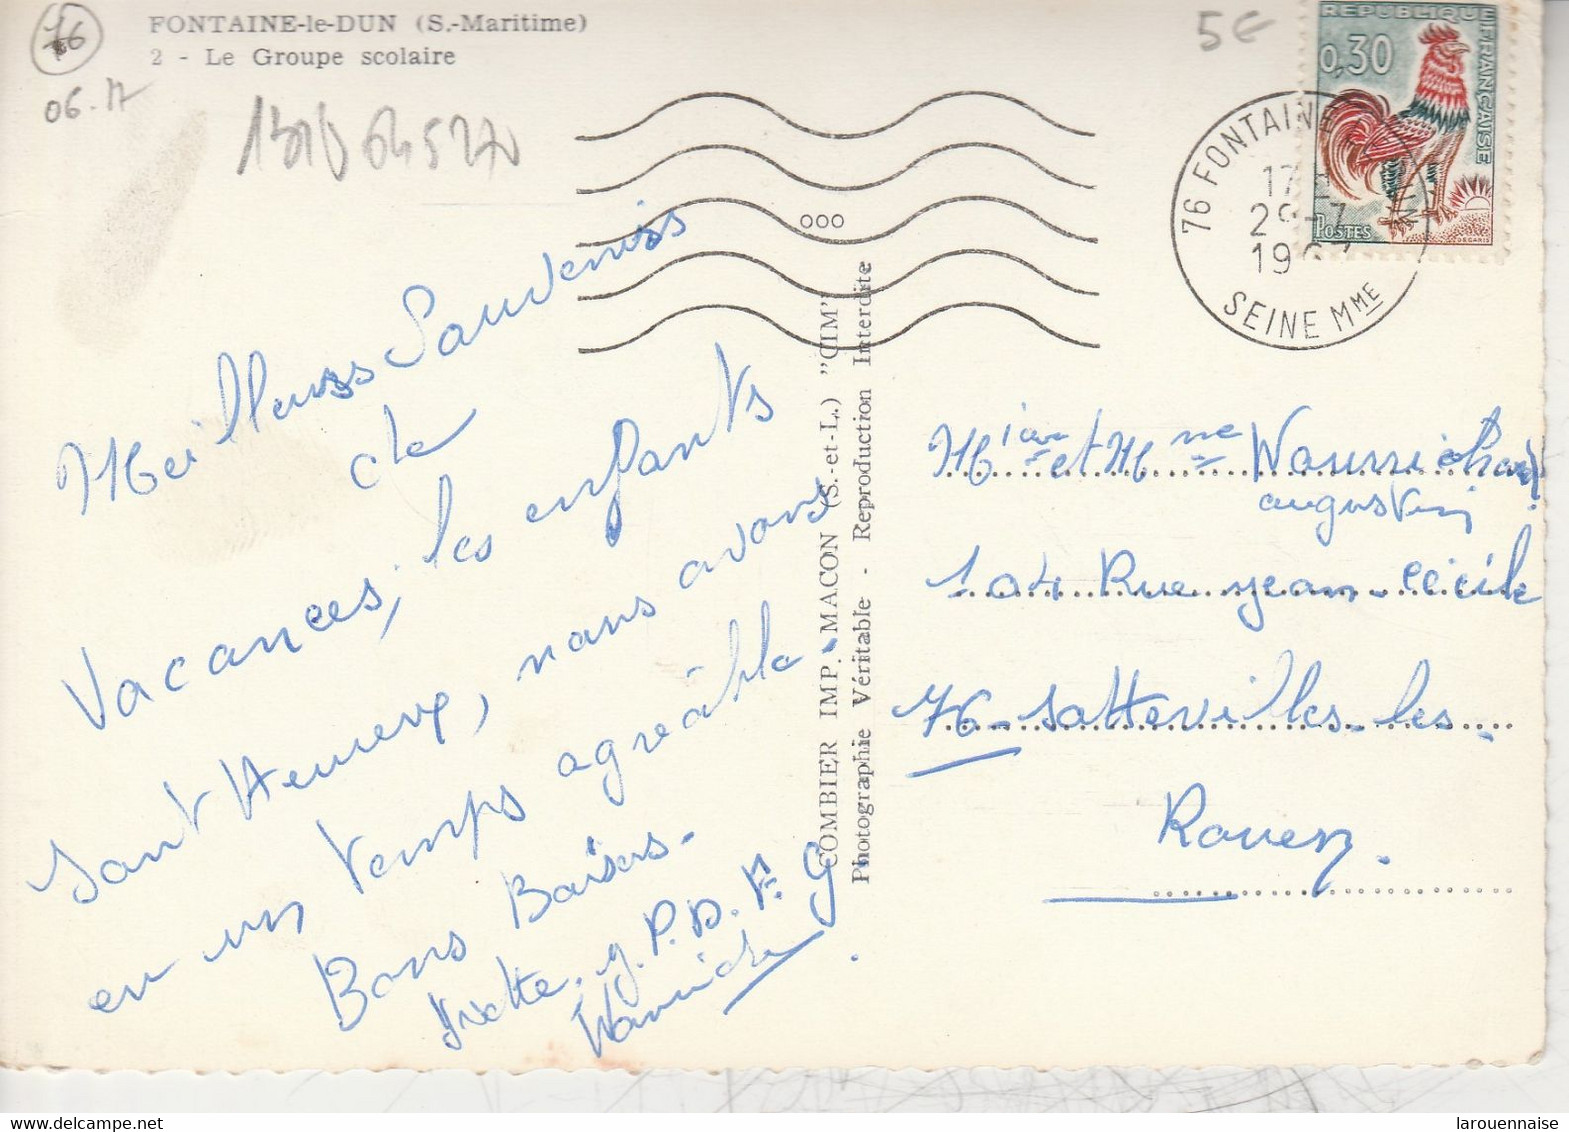 76
FONTAINE-le-DUN (S.-Maritime)
2 - Le Groupe scolaire
06-17
5€
REPUBLIQUE FRANÇAISE
0,30
POSTES
DECARIS
76 FONTAINE
17 H
29-7
196
SEINE MME
000
Meilleurs Souvenirs
de
Vacances, les enfants
sont Heureux, nous avons
en un temps agréable.
Bons Baisers.
Yvette. y. P. D. F. G
COMBIER IMP. MACON (S.-et-L.) "CIM"
Photographie Véritable - Reproduction Interdite
et
augustin
104 Rue jean-Cécile
76-Sotteville-les-
Rouen.
larouennaise